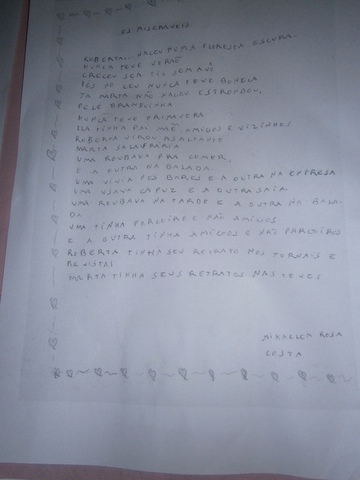 OS MISERÁVEIS
ROBERTA NACEU NUMA FLORESTA ESCURA.
NUNCA TEVE VERÃO
CRECEU SEM TIO SEM AVÓ
PÉS NO CEU NUNCA TEVE BONECA
JA MARTA NÃO NACEU ESTRONDOU,
PELE BRANQUINHA
NUNCA TEVE PRIMAVERA
ELA TINHA PAI MÃE AMIGOS E VIZINHOS
ROBERTA VIROU ASALTANTE
MARTA SALAFRARIA
UMA ROUBAVA PRA COMER,
E A OUTRA NA BALADA.
UMA VIVIA PES BARES E A OUTRA NA EMPRESA
UMA USAVA CAPUZ E A OUTRA SAIA
UMA ROUBAVA NA TARDE E A OUTRA NA BALA-
DA
UMA TINHA PARCEIRO E NÃO AMIGOS
E A OUTRA TINHA AMIGOS E NÃO PARCEIROS
ROBERTA TINHA SEU RETRATO NOS JORNAIS E
REVISTAS
MARTA TINHA SEUS RETRATOS NAS TEVES
MIKAELLA ROSA
COSTA